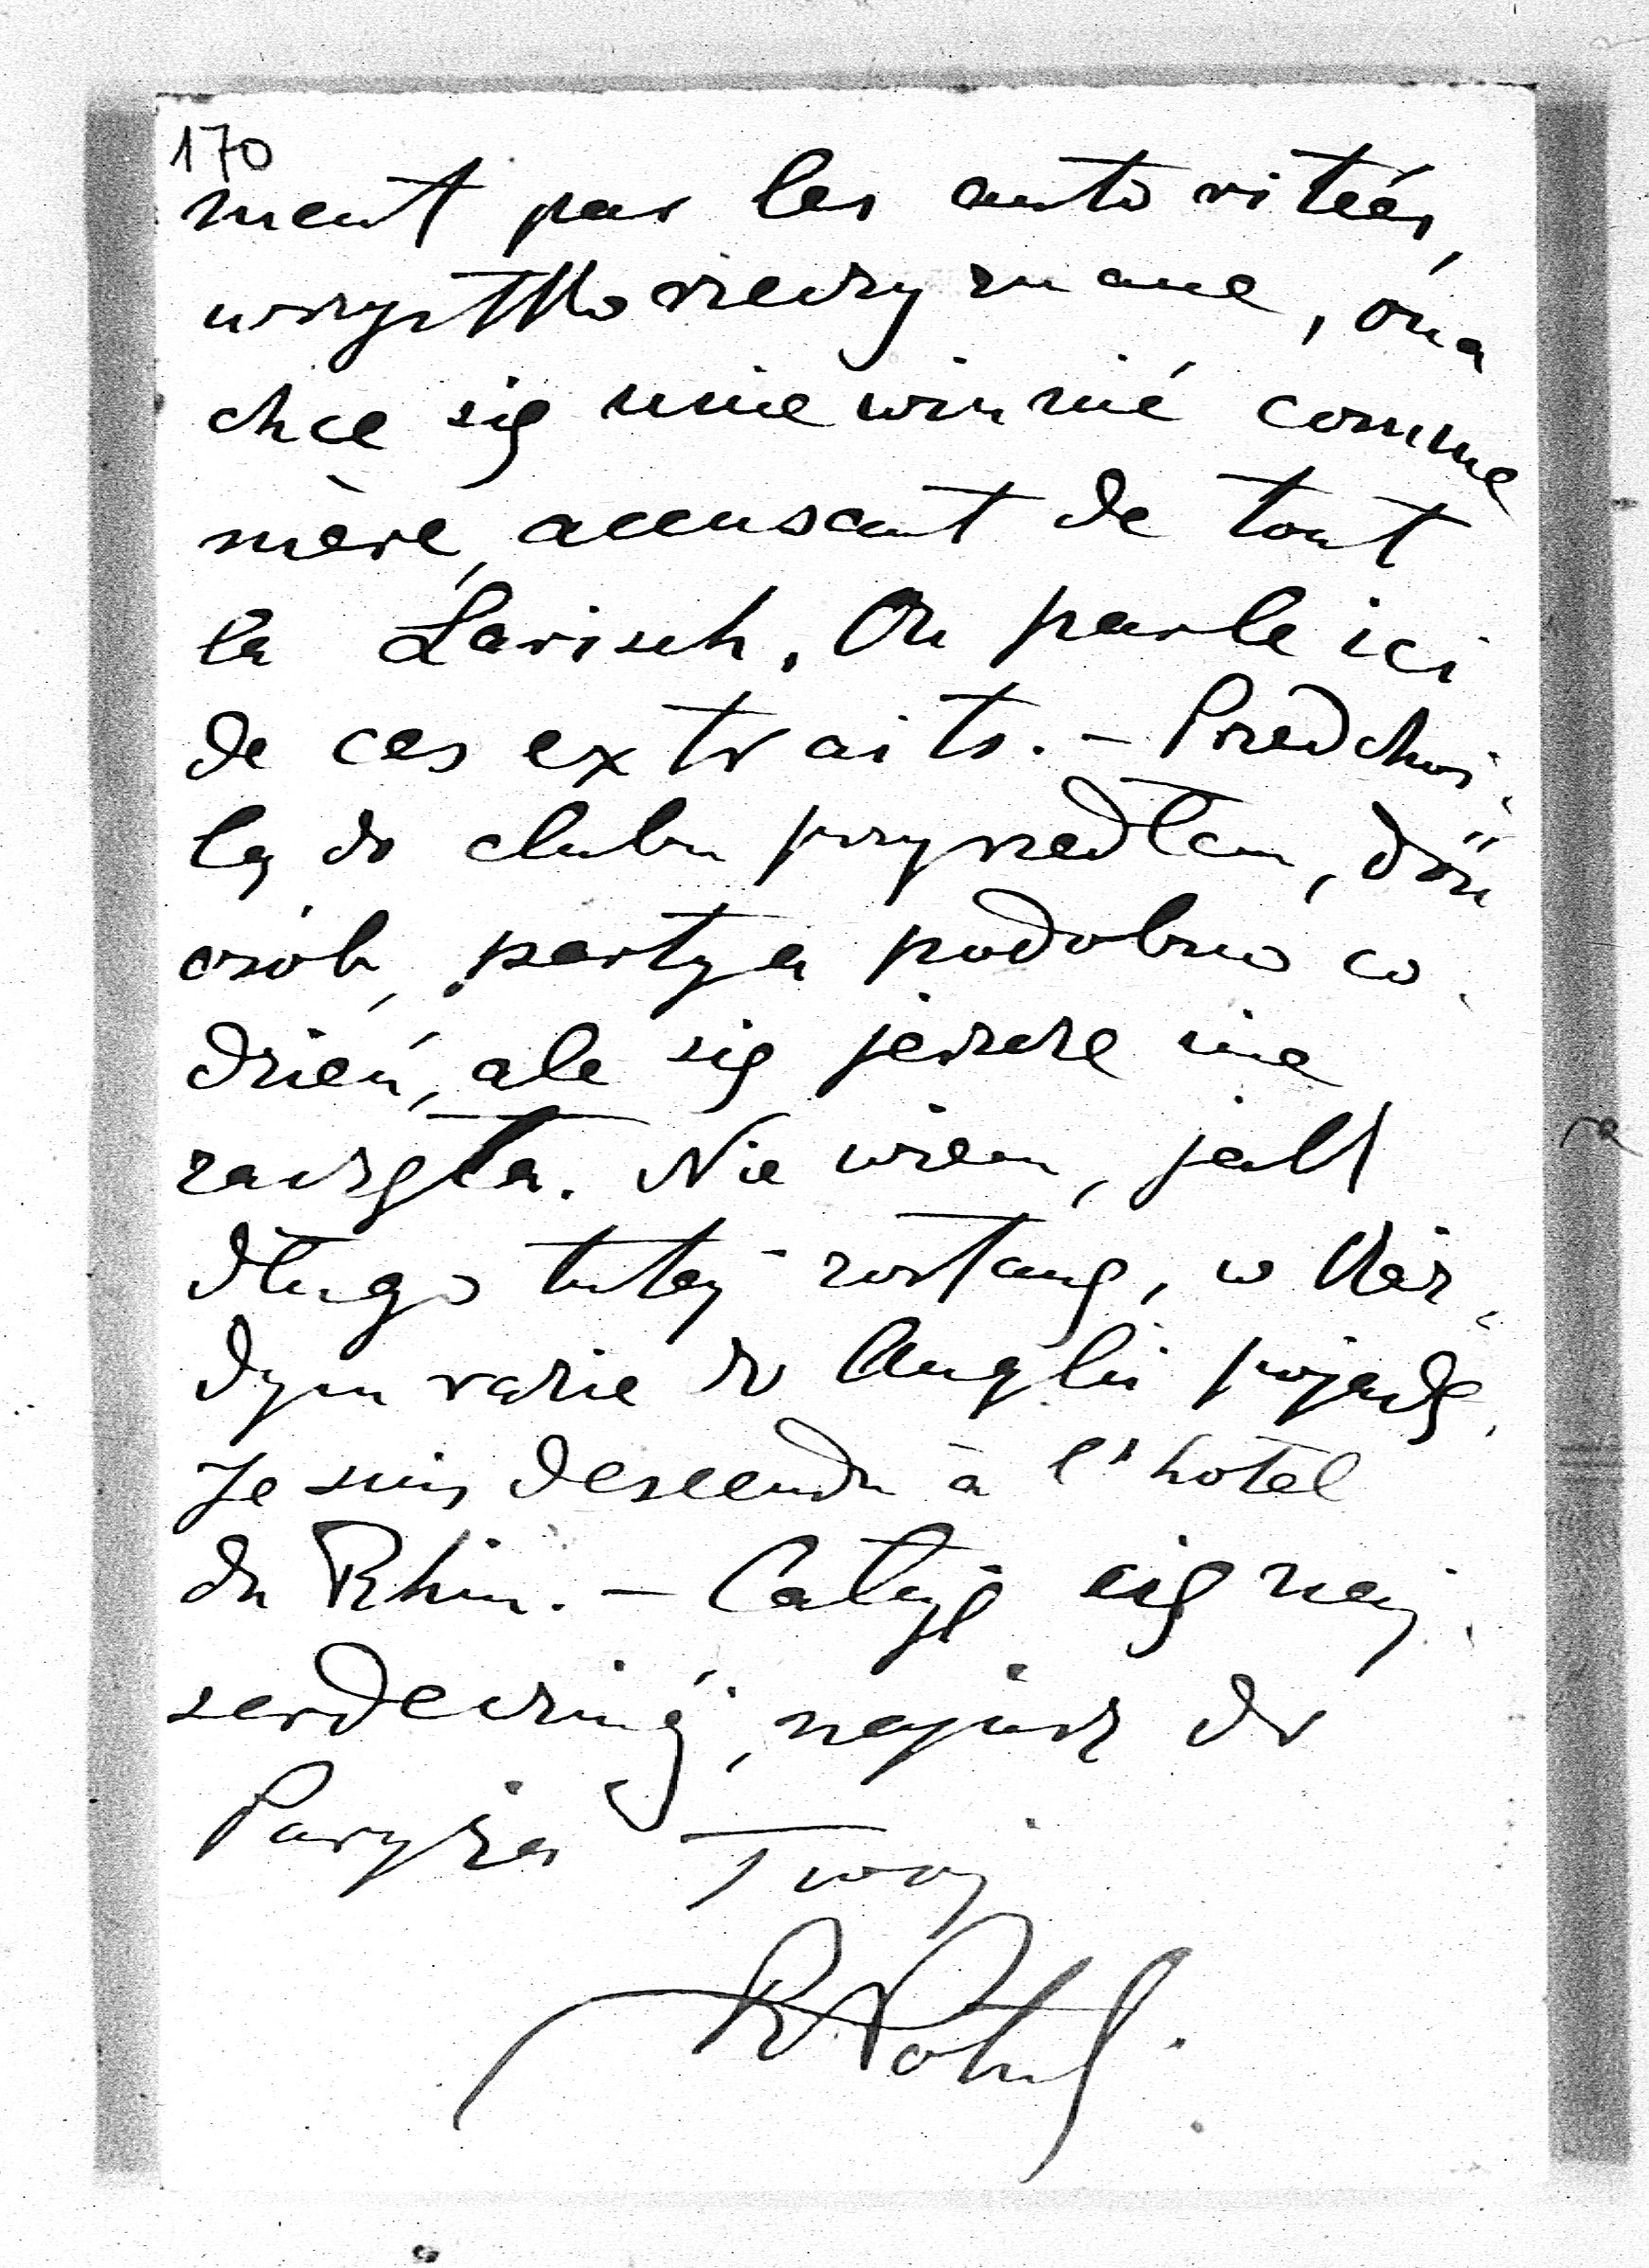 170
ment par les autoritées,
wszystko rzeczy znane, ona
chce się uniewinnić comme
mère, accusant de tout
la Larisch. On parle ici
de ces extraits. – Przed chwi-
lą do clubu przyszedłem, dön
osób, partya podobno co-
dzień, ale się jeszcze nie
zaczęła. Nie wiem, jak
długo tutaj zostanę, w każ-
dym razie do Anglii pojadę.
Je suis descendu à l'hotel
du Rhin. – Całuję cię naj-
serdeczniéj, napisz do
Paryża Twój
RPotocki